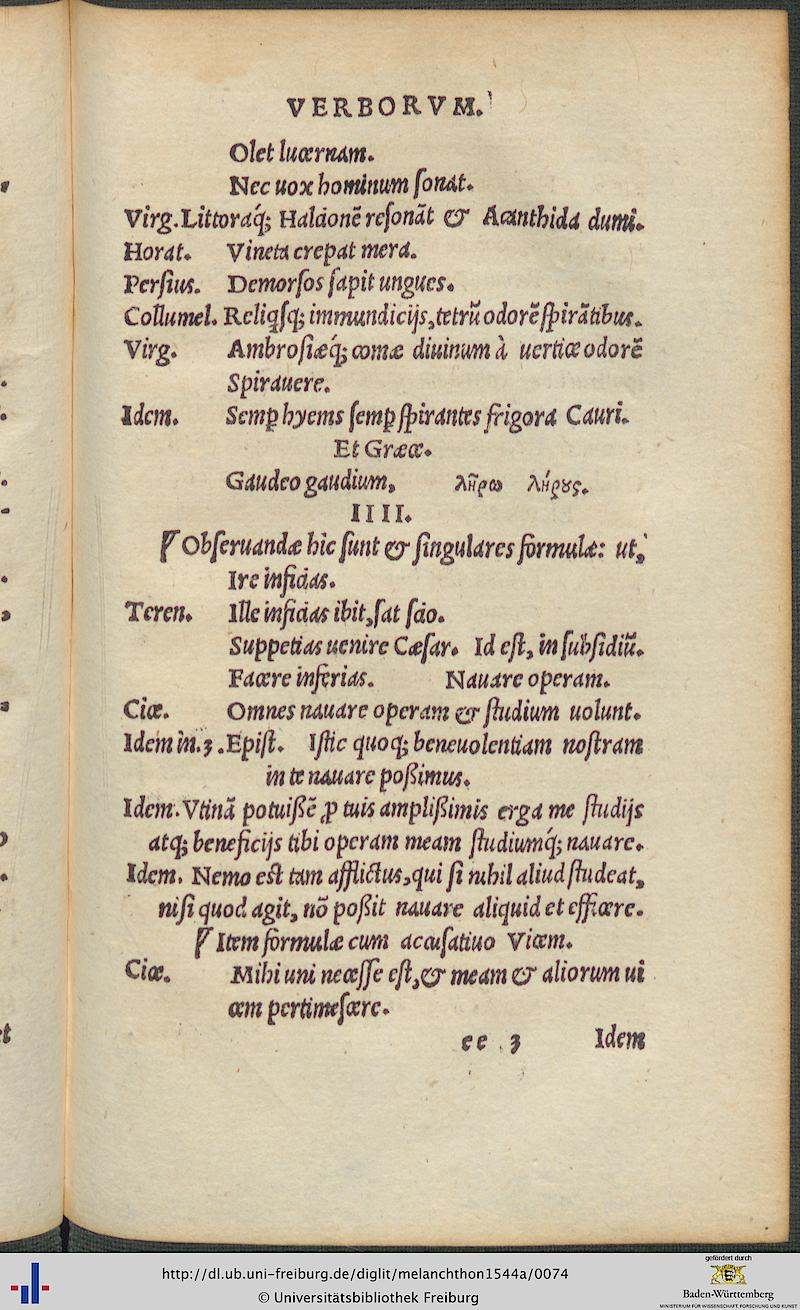 VERBORVM.
Olet lucernam.
Nec uox hominum ſonat.
Virg. Littoraq́; Halcionẽ reſonãt & Acanthida dumi.
Horat. Vineta crepat mera.
Perſius. Demorſos ſapit ungues.
Collumel. Reliqſq; immundicijs, tetrũ odorẽ ſpirãtibus.
Virg. Ambroſiæq́; comæ diuinum à uertice odorẽ
Spirauere.
Idem. Semp̱ hyems ſemp̱ ſpirantes frigora Cauri.
Et Græce.
Gaudeo gaudium, λῆρω λήρȣς.
IIII.
Obſeruandæ hic ſunt & ſingulares formulæ: ut,
Ire inficias.
Teren. Ille inficias ibit, ſat ſcio.
Suppetias uenire Cæſar. Id eſt, in ſubſidiũ.
Facere inferias. Nauare operam.
Cice. Omnes nauare operam & ſtudium uolunt.
Idem in.3.Epiſt. Iſtic quoq; beneuolentiam noſtram
in te nauare poßimus.
Idem. Vtinã potuißẽ ꝓ tuis amplißimis erga me ſtudijs
atq; beneficijs tibi operam meam ſtudiumq́; nauare.
Idem. Nemo eſt tam afflictus, qui ſi nihil aliud ſtudeat,
niſi quod agit, nõ poßit nauare aliquid et efficere.
Item formulæ cum accuſatiuo Vicem.
Cice. Mihi uni neceſſe eſt, & meam & aliorum ui
cem pertimeſcere.
ee 3 Idem
http://dl.ub.uni-freiburg.de/diglit/melanchthon1544a/0074
© Universitätsbibliothek Freiburg
gefördert durch
Baden-Württemberg
MINISTERIUM FÜR WISSENSCHAFT, FORSCHUNG UND KUNST